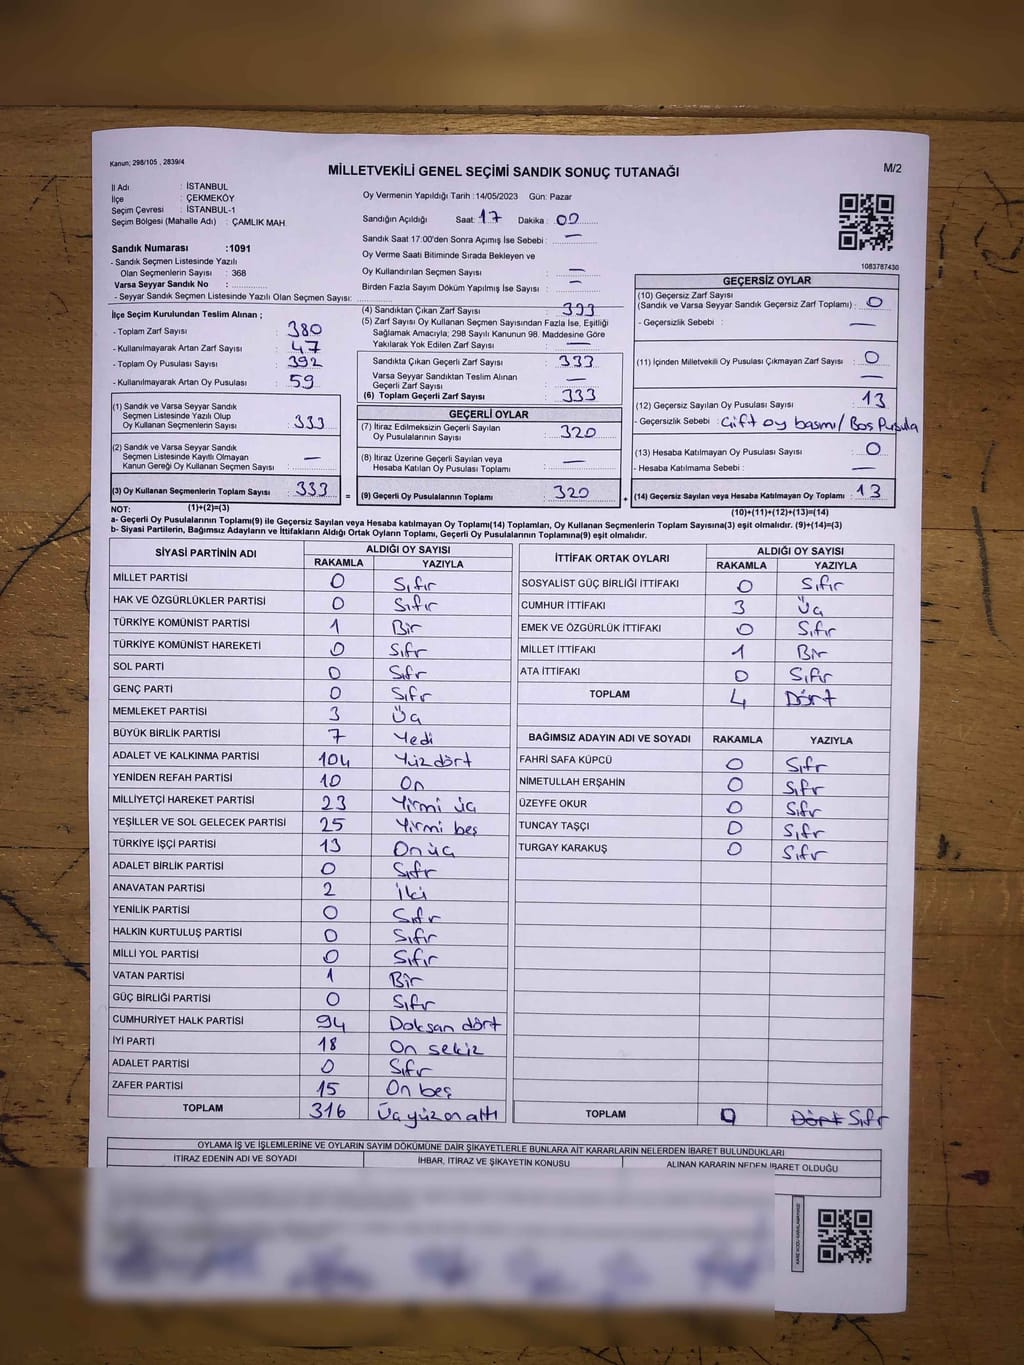 Kanun; 298/105 , 2839/4
MİLLETVEKİLİ GENEL SEÇİMİ SANDIK SONUÇ TUTANAĞI
M/2
İl Adı : İSTANBUL
İlçe : ÇEKMEKÖY
Seçim Çevresi : İSTANBUL-1
Seçim Bölgesi (Mahalle Adı) : ÇAMLIK MAH
Sandık Numarası :1091
- Sandık Seçmen Listesinde Yazılı
Olan Seçmenlerin Sayısı : 368
Varsa Seyyar Sandık No :
- Seyyar Sandık Seçmen Listesinde Yazılı Olan Seçmen Sayısı:
Oy Vermenin Yapıldığı Tarih : 14/05/2023 Gün: Pazar
Sandığın Açıldığı Saat: 17 Dakika : 00
Sandık Saat 17:00'den Sonra Açımış İse Sebebi : —
Oy Verme Saati Bitiminde Sırada Bekleyen ve
Oy Kullandırılan Seçmen Sayısı : —
Birden Fazla Sayım Döküm Yapılmış İse Sayısı : —
1083787430
İlçe Seçim Kurulundan Teslim Alınan ;
- Toplam Zarf Sayısı : 380
- Kullanılmayarak Artan Zarf Sayısı : 47
- Toplam Oy Pusulası Sayısı : 392
- Kullanılmayarak Artan Oy Pusulası : 59
(1) Sandık ve Varsa Seyyar Sandık
Seçmen Listesinde Yazılı Olup
Oy Kullanan Seçmenlerin Sayısı : 333
(2) Sandık ve Varsa Seyyar Sandık
Seçmen Listesinde Kayıtlı Olmayan
Kanun Gereği Oy Kullanan Seçmen Sayısı : —
(3) Oy Kullanan Seçmenlerin Toplam Sayısı : 333
(1)+(2)=(3)
(4) Sandıktan Çıkan Zarf Sayısı : 333
(5) Zarf Sayısı Oy Kullanan Seçmen Sayısından Fazla İse, Eşitliği
Sağlamak Amacıyla; 298 Sayılı Kanunun 98. Maddesine Göre
Yakılarak Yok Edilen Zarf Sayısı : —
Sandıkta Çıkan Geçerli Zarf Sayısı : 333
Varsa Seyyar Sandıktan Teslim Alınan
Geçerli Zarf Sayısı : —
(6) Toplam Geçerli Zarf Sayısı : 333
GEÇERLİ OYLAR
(7) İtiraz Edilmeksizin Geçerli Sayılan
Oy Pusulalarının Sayısı : 320
(8) İtiraz Üzerine Geçerli Sayılan veya
Hesaba Katılan Oy Pusulası Toplamı : —
= (9) Geçerli Oy Pusulalarının Toplamı : 320
GEÇERSİZ OYLAR
(10) Geçersiz Zarf Sayısı
(Sandık ve Varsa Seyyar Sandık Geçersiz Zarf Toplamı) : 0
- Geçersizlik Sebebi : —
(11) İçinden Milletvekili Oy Pusulası Çıkmayan Zarf Sayısı : 0
—
(12) Geçersiz Sayılan Oy Pusulası Sayısı : 13
- Geçersizlik Sebebi : Çift oy basmı/ Bos Pusula
(13) Hesaba Katılmayan Oy Pusulası Sayısı : 0
- Hesaba Katılmama Sebebi : —
+ (14) Geçersiz Sayılan veya Hesaba Katılmayan Oy Toplamı : 13
(10)+(11)+(12)+(13)=(14)
NOT:
a- Geçerli Oy Pusulalarının Toplamı(9) ile Geçersiz Sayılan veya Hesaba katılmayan Oy Toplamı(14) Toplamları, Oy Kullanan Seçmenlerin Toplam Sayısına(3) eşit olmalıdır. (9)+(14)=(3)
b- Siyasi Partilerin, Bağımsız Adayların ve İttifakların Aldığı Ortak Oyların Toplamı, Geçerli Oy Pusulalarının Toplamına(9) eşit olmalıdır.
SİYASİ PARTİNİN ADI ALDIĞI OY SAYISI
RAKAMLA YAZIYLA
MİLLET PARTİSİ 0 Sıfır
HAK VE ÖZGÜRLÜKLER PARTİSİ 0 Sıfır
TÜRKİYE KOMÜNİST PARTİSİ 1 Bir
TÜRKİYE KOMÜNİST HAREKETİ 0 Sıfr
SOL PARTİ 0 Sıfr
GENÇ PARTİ 0 Sıfr
MEMLEKET PARTİSİ 3 Üç
BÜYÜK BİRLİK PARTİSİ 7 Yedi
ADALET VE KALKINMA PARTİSİ 104 Yüzdört
YENİDEN REFAH PARTİSİ 10 On
MİLLİYETÇİ HAREKET PARTİSİ 23 Yirmi üç
YEŞİLLER VE SOL GELECEK PARTİSİ 25 Yirmi beş
TÜRKİYE İŞÇİ PARTİSİ 13 Onüç
ADALET BİRLİK PARTİSİ 0 Sıfr
ANAVATAN PARTİSİ 2 İki
YENİLİK PARTİSİ 0 Sıfır
HALKIN KURTULUŞ PARTİSİ 0 Sıfır
MİLLİ YOL PARTİSİ 0 Sıfır
VATAN PARTİSİ 1 Bir
GÜÇ BİRLİĞİ PARTİSİ 0 Sıfr
CUMHURİYET HALK PARTİSİ 94 Doksan dört
İYİ PARTİ 18 On sekiz
ADALET PARTİSİ 0 Sıfr
ZAFER PARTİSİ 15 On beş
TOPLAM 316 Üçyüzonaltı
İTTİFAK ORTAK OYLARI ALDIĞI OY SAYISI
RAKAMLA YAZIYLA
SOSYALİST GÜÇ BİRLİĞİ İTTİFAKI 0 Sıfır
CUMHUR İTTİFAKI 3 Üç
EMEK VE ÖZGÜRLÜK İTTİFAKI 0 Sıfır
MİLLET İTTİFAKI 1 Bir
ATA İTTİFAKI 0 Sıfır
TOPLAM 4 Dört
BAĞIMSIZ ADAYIN ADI VE SOYADI RAKAMLA YAZIYLA
FAHRİ SAFA KÜPCÜ 0 Sıfr
NİMETULLAH ERŞAHİN 0 Sıfr
ÜZEYFE OKUR 0 Sıfr
TUNCAY TAŞÇI 0 Sıfr
TURGAY KARAKUŞ 0 Sıfr
TOPLAM 0 Dört Sıfr
OYLAMA İŞ VE İŞLEMLERİNE VE OYLARIN SAYIM DÖKÜMÜNE DAİR ŞİKAYETLERLE BUNLARA AİT KARARLARIN NELERDEN İBARET BULUNDUKLARI
İTİRAZ EDENİN ADI VE SOYADI İHBAR, İTİRAZ VE ŞİKAYETİN KONUSU ALINAN KARARIN NEDEN İBARET OLDUĞU